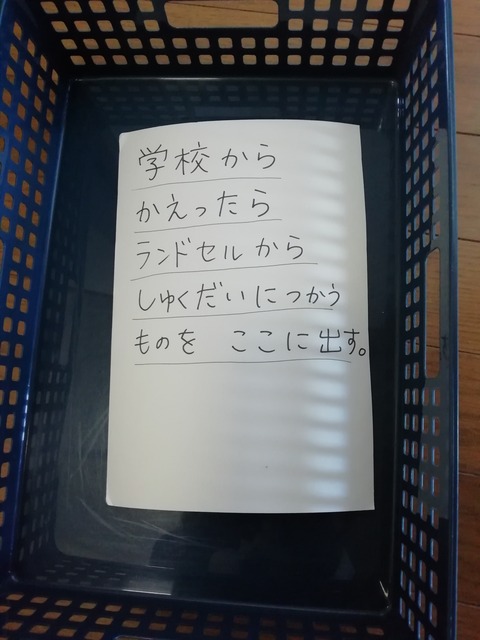 学校から
かえったら
ランドセルから
しゅくだいにつかう
ものを　ここに出す。